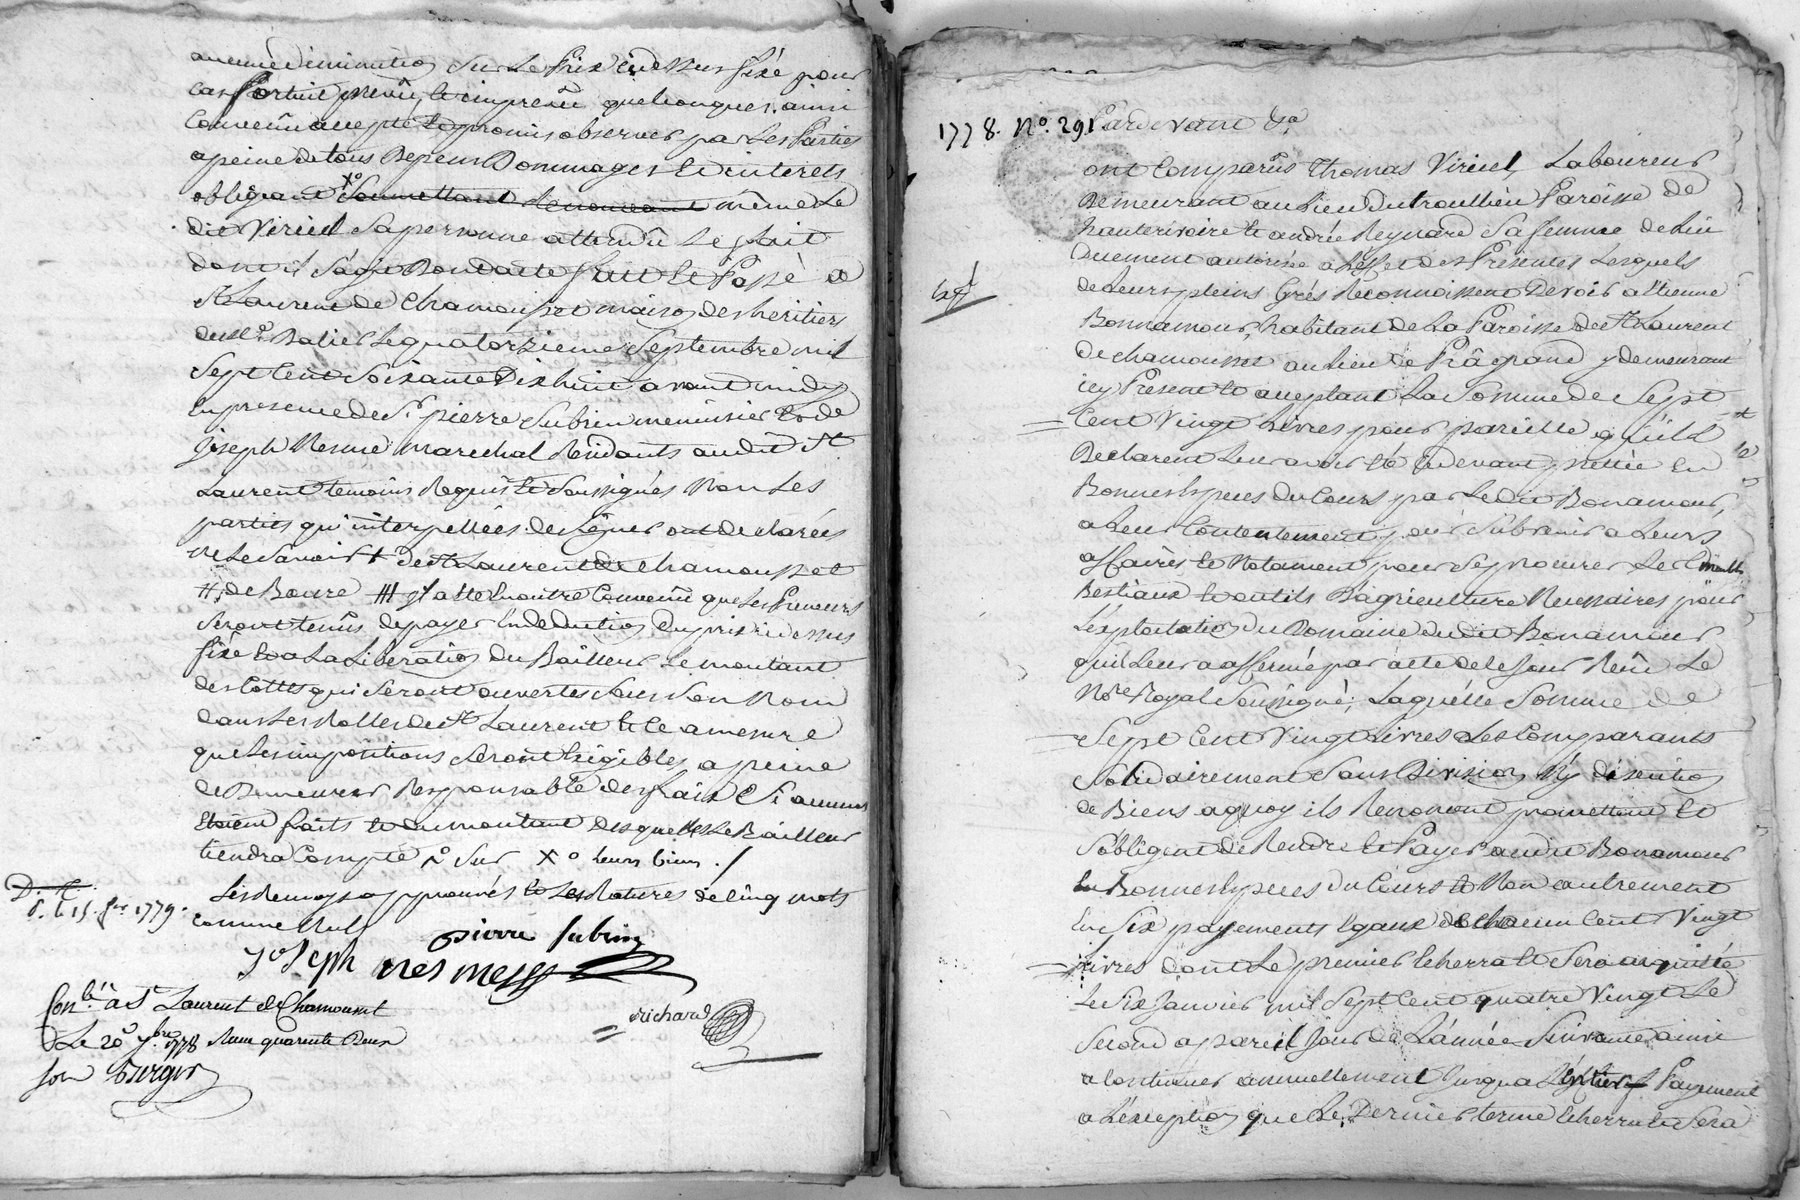 aucune diminution sur le prix cy dessus fixé pour
cas fortuit prevû, et imprevû quelconques. ainsi
convenû accepté et promis observer par les parties
a peine de tous depens Dommages et interets
obligeant Xº soumettant renonceant même le
dit Viriel sa personne attendû le fait
dont il s'agit Dont acte fait et Passé a
St Laurent de Chamousset maison des heritiers
le quatorzieme Septembre mil
Sept Cent Soixante Dix huit avant midy
En presence de Sr pierre Subrin menuisier et de
Joseph Nesme marechal Residants audit St
Laurent temoins Requis et Soussignés Non les
parties qu'interpellées de signer ont declarées
ne le savoir + de St Laurent de Chamousset
#, de Boure ### il a été encontre convenû que les Preneurs
seront tenûs de payer en deduction du prix ci dessus
fixé et a la Liberation du Bailleur le montant
des cottes qui seront ouvertes sous son nom
dans les Rolles de St Laurent et ce a mesure
que les impositions seront Exigibles a peine
de Demeurer Responsable des frais si aucuns
Etoient faits et du montant desquelles le Bailleur
tiendra Compte sur Xº leurs biens ./
Les Renvoys approuvés et les Ratures de cinq mots
comme Nuls
D. 15. 1779.
pierre subrin
Joseph nesme
richard
Conlé à St Laurent de Chamousset
Le 20 7bre 1778 Reçu quarente Deux
sols Burgis
1778. No. 291 Pardevant &a
ont Comparûs Thomas Viriel, Laboureur
Demeurant au lieu du trouillieu Paroisse de
hauterivoire et andrée Reynard sa femme de lui
Duement autorisée a l'effet des Présentes Lesquels
de leurs pleins Grés Reconnoissent Devoir a Etienne
Bonnamour, habitant de la Paroisse de St Laurent
de chamousset au lieu de Prâgrand y demeurant
icy Present et acceptant La Somme de Sept
Cent Vingt Livres pour pareille qu'ils
Declarent leur avoir été cy devant prettée en
Bonnes Especes du Cours par ledit Bonamour,
a leur Contentement pour subvenir a leurs
affaires et Notament pour se procurer les meubles
Bestiaux et outils d'agriculture Necessaires pour
l'exploitation du Domaine dudit Bonamour
qu'il leur a affermé par acte de ce Jour Reçû le
Nore Royal Soussigné; Laquelle Somme de
Sept Cent Vingt Livres Les Comparants
Solidairement Sans Division Ny discution
de Biens a quoy ils Renoncent promettent et
s'obligent de Rendre et Payer audit Bonamour
En Bonnes Especes du Cours et Non autrement
En Six payements Egaux de chacun Cent Vingt
Livres dont le premier Echerra et sera acquitté
Le Six Janvier mil Sept Cent quatre Vingt Le
Second a pareil Jour de L'année Suivante ainsi
a continuer annuellement jusqu'a l'Entier Payement
a L'exception que le Dernier terme Echerra et Sera